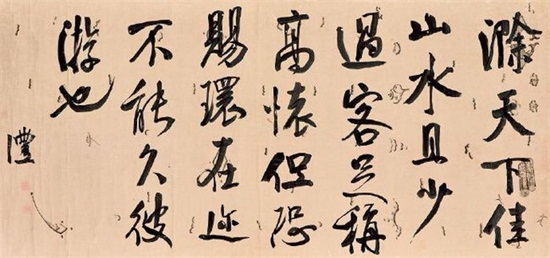 滁天下佳
山水且少
過客足稱
高懷但恐
賜環在迩
不能久彼
游也
澧